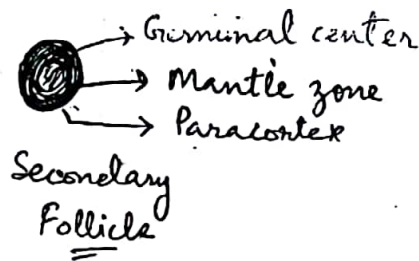 Germinal center
Mantle zone
Paracortex
Secondary
Follicle